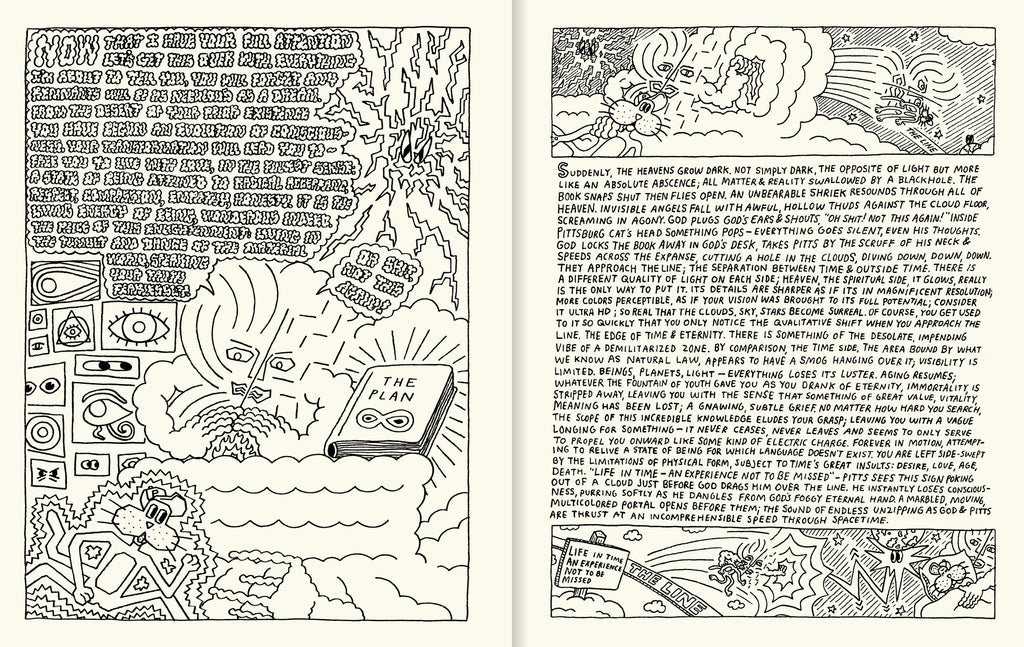 NOW THAT I HAVE YOUR FULL ATTENTION
LET'S GET THIS OVER WITH. EVERYTHING
I'M ABOUT TO TELL YOU, YOU WILL FORGET. ANY
REMNANTS WILL BE AS NEBULOUS AS A DREAM.
FROM THE DESERT OF YOUR PRIOR EXISTENCE
YOU HAVE BEGUN AN EVOLUTION OF CONSCIOUS-
NESS. YOUR TRANSFORMATION WILL LEAD YOU TO-
FREE YOU TO LIVE WITH LOVE, IN THE FULLEST SENSE.
A STATE OF BEING ATTUNED TO RADICAL ACCEPTANCE,
RESPECT, COMPASSION, EMPATHY, HONESTY. IT IS THE
ENERGY OF BEING, WONDEROUS INDEED.
THE PRICE OF THIS ENLIGHTENMENT: LIVING IN
THE TUMULT AND DANGER OF THE MATERIAL
WORLD, SPEAKING
YOUR TRUTH
FEARLESSLY.
OH SHIT!
NOT THIS
AGAIN!
THE
PLAN
THE LINE
SUDDENLY, THE HEAVENS GROW DARK. NOT SIMPLY DARK, THE OPPOSITE OF LIGHT BUT MORE
LIKE AN ABSOLUTE ABSCENCE; ALL MATTER & REALITY SWALLOWED BY A BLACKHOLE. THE
BOOK SNAPS SHUT THEN FLIES OPEN. AN UNBEARABLE SHRIEK RESOUNDS THROUGH ALL OF
HEAVEN. INVISIBLE ANGELS FALL WITH AWFUL, HOLLOW THUDS AGAINST THE CLOUD FLOOR,
SCREAMING IN AGONY. GOD PLUGS GOD'S EARS & SHOUTS, "OH SHIT! NOT THIS AGAIN!" INSIDE
PITTSBURG CAT'S HEAD SOMETHING POPS – EVERYTHING GOES SILENT, EVEN HIS THOUGHTS.
GOD LOCKS THE BOOK AWAY IN GOD'S DESK, TAKES PITTS BY THE SCRUFF OF HIS NECK &
SPEEDS ACROSS THE EXPANSE, CUTTING A HOLE IN THE CLOUDS, DIVING DOWN, DOWN, DOWN.
THEY APPROACH THE LINE; THE SEPARATION BETWEEN TIME & OUTSIDE TIME. THERE IS
A DIFFERENT QUALITY OF LIGHT ON EACH SIDE; HEAVEN, THE SPIRITUAL SIDE, IT GLOWS, REALLY
IS THE ONLY WAY TO PUT IT. ITS DETAILS ARE SHARPER AS IF ITS IN MAGNIFICENT RESOLUTION;
MORE COLORS PERCEPTIBLE, AS IF YOUR VISION WAS BROUGHT TO ITS FULL POTENTIAL; CONSIDER
IT ULTRA HD; SO REAL THAT THE CLOUDS, SKY, STARS BECOME SURREAL. OF COURSE, YOU GET USED
TO IT SO QUICKLY THAT YOU ONLY NOTICE THE QUALITATIVE SHIFT WHEN YOU APPROACH THE
LINE. THE EDGE OF TIME & ETERNITY. THERE IS SOMETHING OF THE DESOLATE, IMPENDING
VIBE OF A DEMILITARIZED ZONE. BY COMPARISON, THE TIME SIDE, THE AREA BOUND BY WHAT
WE KNOW AS NATURAL LAW, APPEARS TO HAVE A SMOG HANGING OVER IT; VISIBILITY IS
LIMITED. BEINGS, PLANETS, LIGHT – EVERYTHING LOSES IT'S LUSTER. AGING RESUMES;
WHATEVER THE FOUNTAIN OF YOUTH GAVE YOU AS YOU DRANK OF ETERNITY, IMMORTALITY, IS
STRIPPED AWAY, LEAVING YOU WITH THE SENSE THAT SOMETHING OF GREAT VALUE, VITALITY,
MEANING HAS BEEN LOST; A GNAWING, SUBTLE GRIEF. NO MATTER HOW HARD YOU SEARCH,
THE SCOPE OF THIS INCREDIBLE KNOWLEDGE ELUDES YOUR GRASP; LEAVING YOU WITH A VAGUE
LONGING FOR SOMETHING – IT NEVER CEASES, NEVER LEAVES AND SEEMS TO ONLY SERVE
TO PROPEL YOU ONWARD LIKE SOME KIND OF ELECTRIC CHARGE. FOREVER IN MOTION, ATTEMPT-
ING TO RELIVE A STATE OF BEING FOR WHICH LANGUAGE DOESN'T EXIST. YOU ARE LEFT SIDE-SWEPT
BY THE LIMITATIONS OF PHYSICAL FORM, SUBJECT TO TIME'S GREAT INSULTS: DESIRE, LOVE, AGE,
DEATH. "LIFE IN TIME – AN EXPERIENCE NOT TO BE MISSED" – PITTS SEES THIS SIGN POKING
OUT OF A CLOUD JUST BEFORE GOD DRAGS HIM OVER THE LINE. HE INSTANTLY LOSES CONSCIOUS-
NESS, PURRING SOFTLY AS HE DANGLES FROM GOD'S FOGGY ETERNAL HAND. A MARBLED, MOVING,
MULTICOLORED PORTAL OPENS BEFORE THEM; THE SOUND OF ENDLESS UNZIPPING AS GOD & PITTS
ARE THRUST AT AN INCOMPREHENSIBLE SPEED THROUGH SPACETIME.
LIFE IN TIME
AN EXPERIENCE
NOT TO BE
MISSED
THE LINE